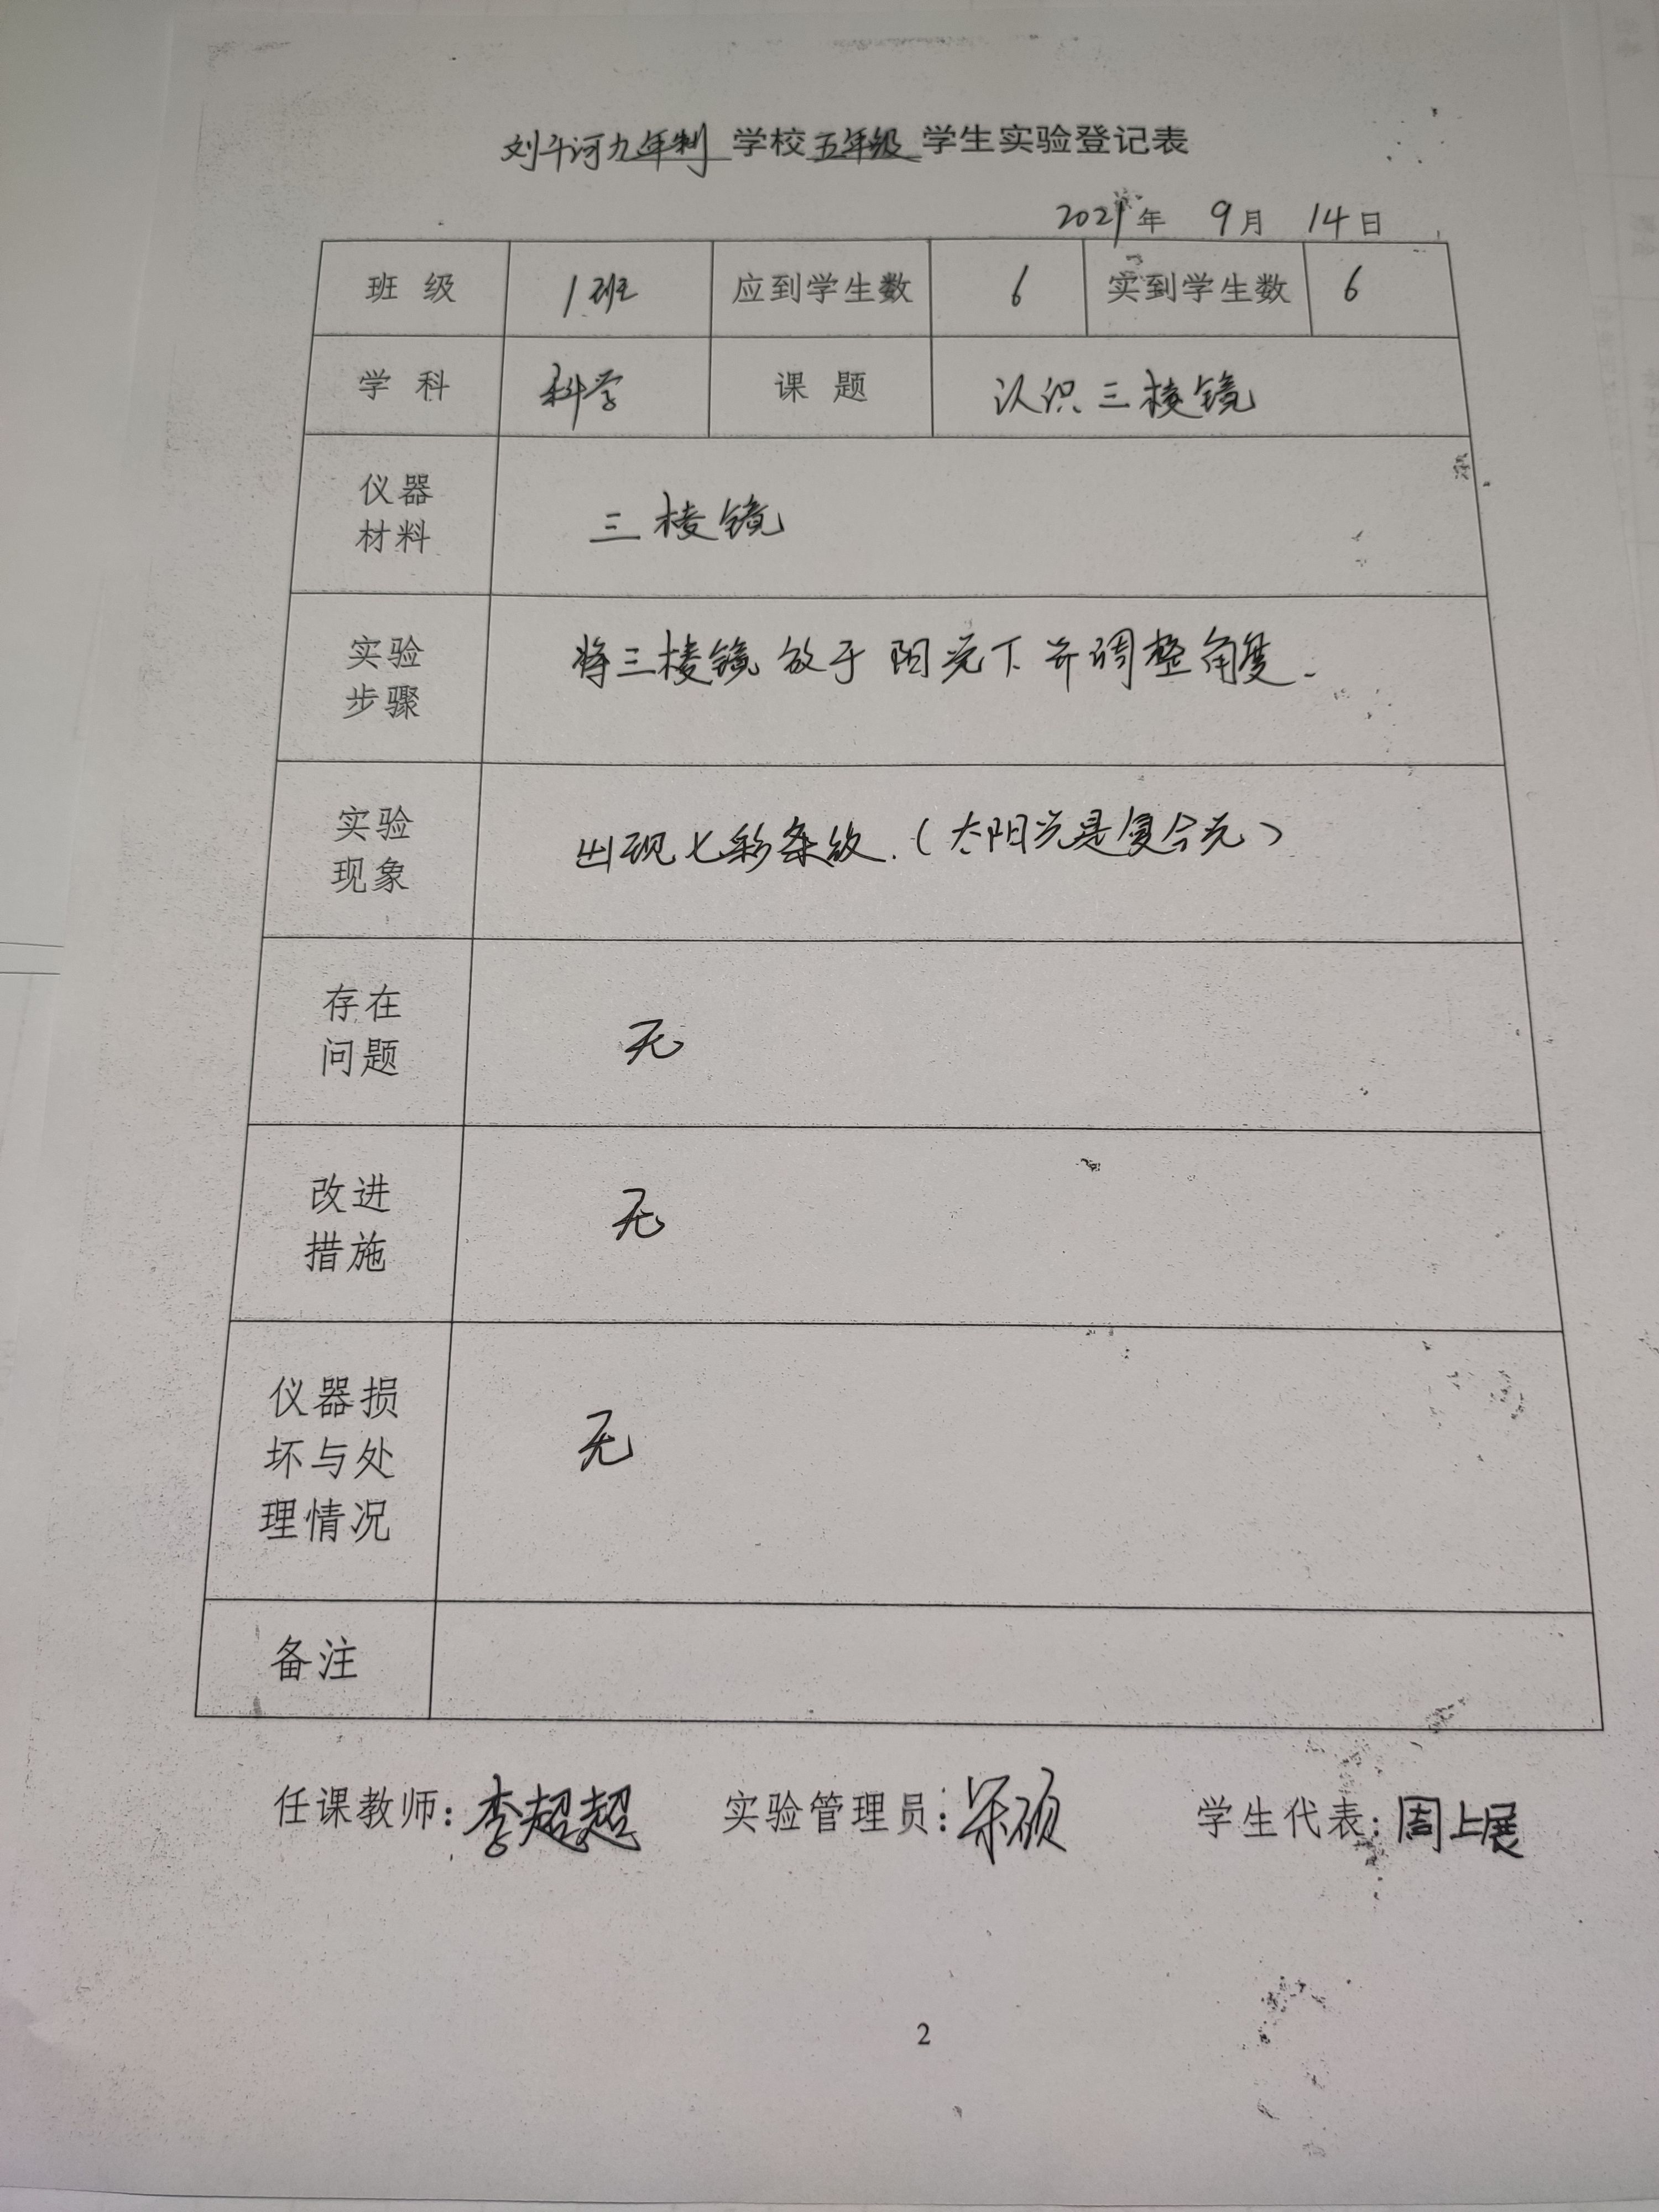 刘斗河九年制学校五年级学生实验登记表
2021年 9月 14日
班 级 1班 应到学生数 6 实到学生数 6
学 科 科学 课 题 认识三棱镜
仪器
材料
三棱镜
实验
步骤
将三棱镜放于阳光下并调整角度.
实验
现象
出现七彩条纹.(太阳光是复合光)
存在
问题
无
改进
措施
无
仪器损
坏与处
理情况
无
备注
任课教师:李超超 实验管理员:宋硕 学生代表:周上展
2